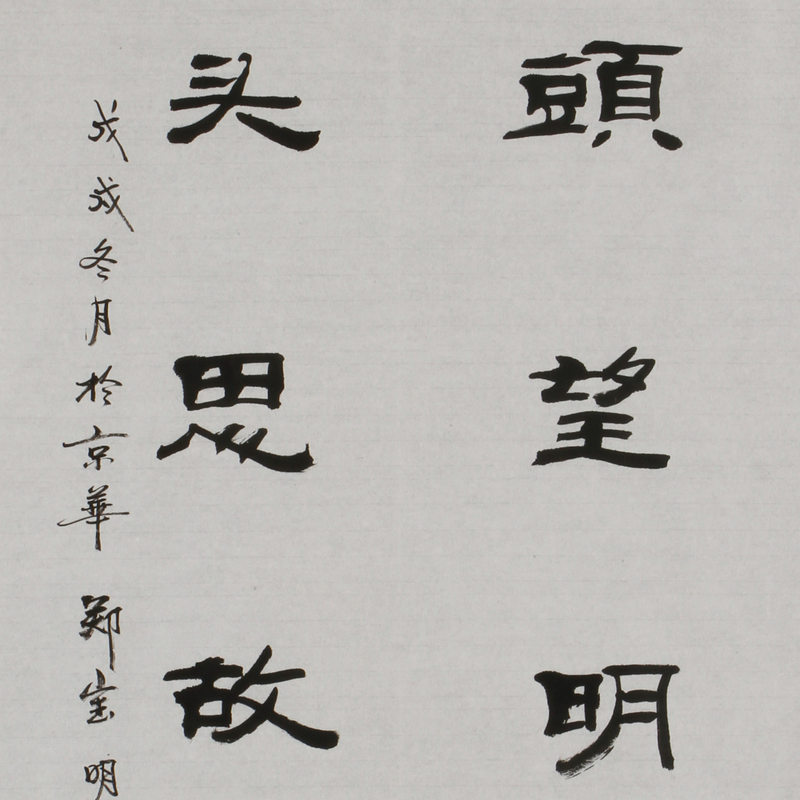 頭望明
头思故
戊戌冬月於京華 郑宝明